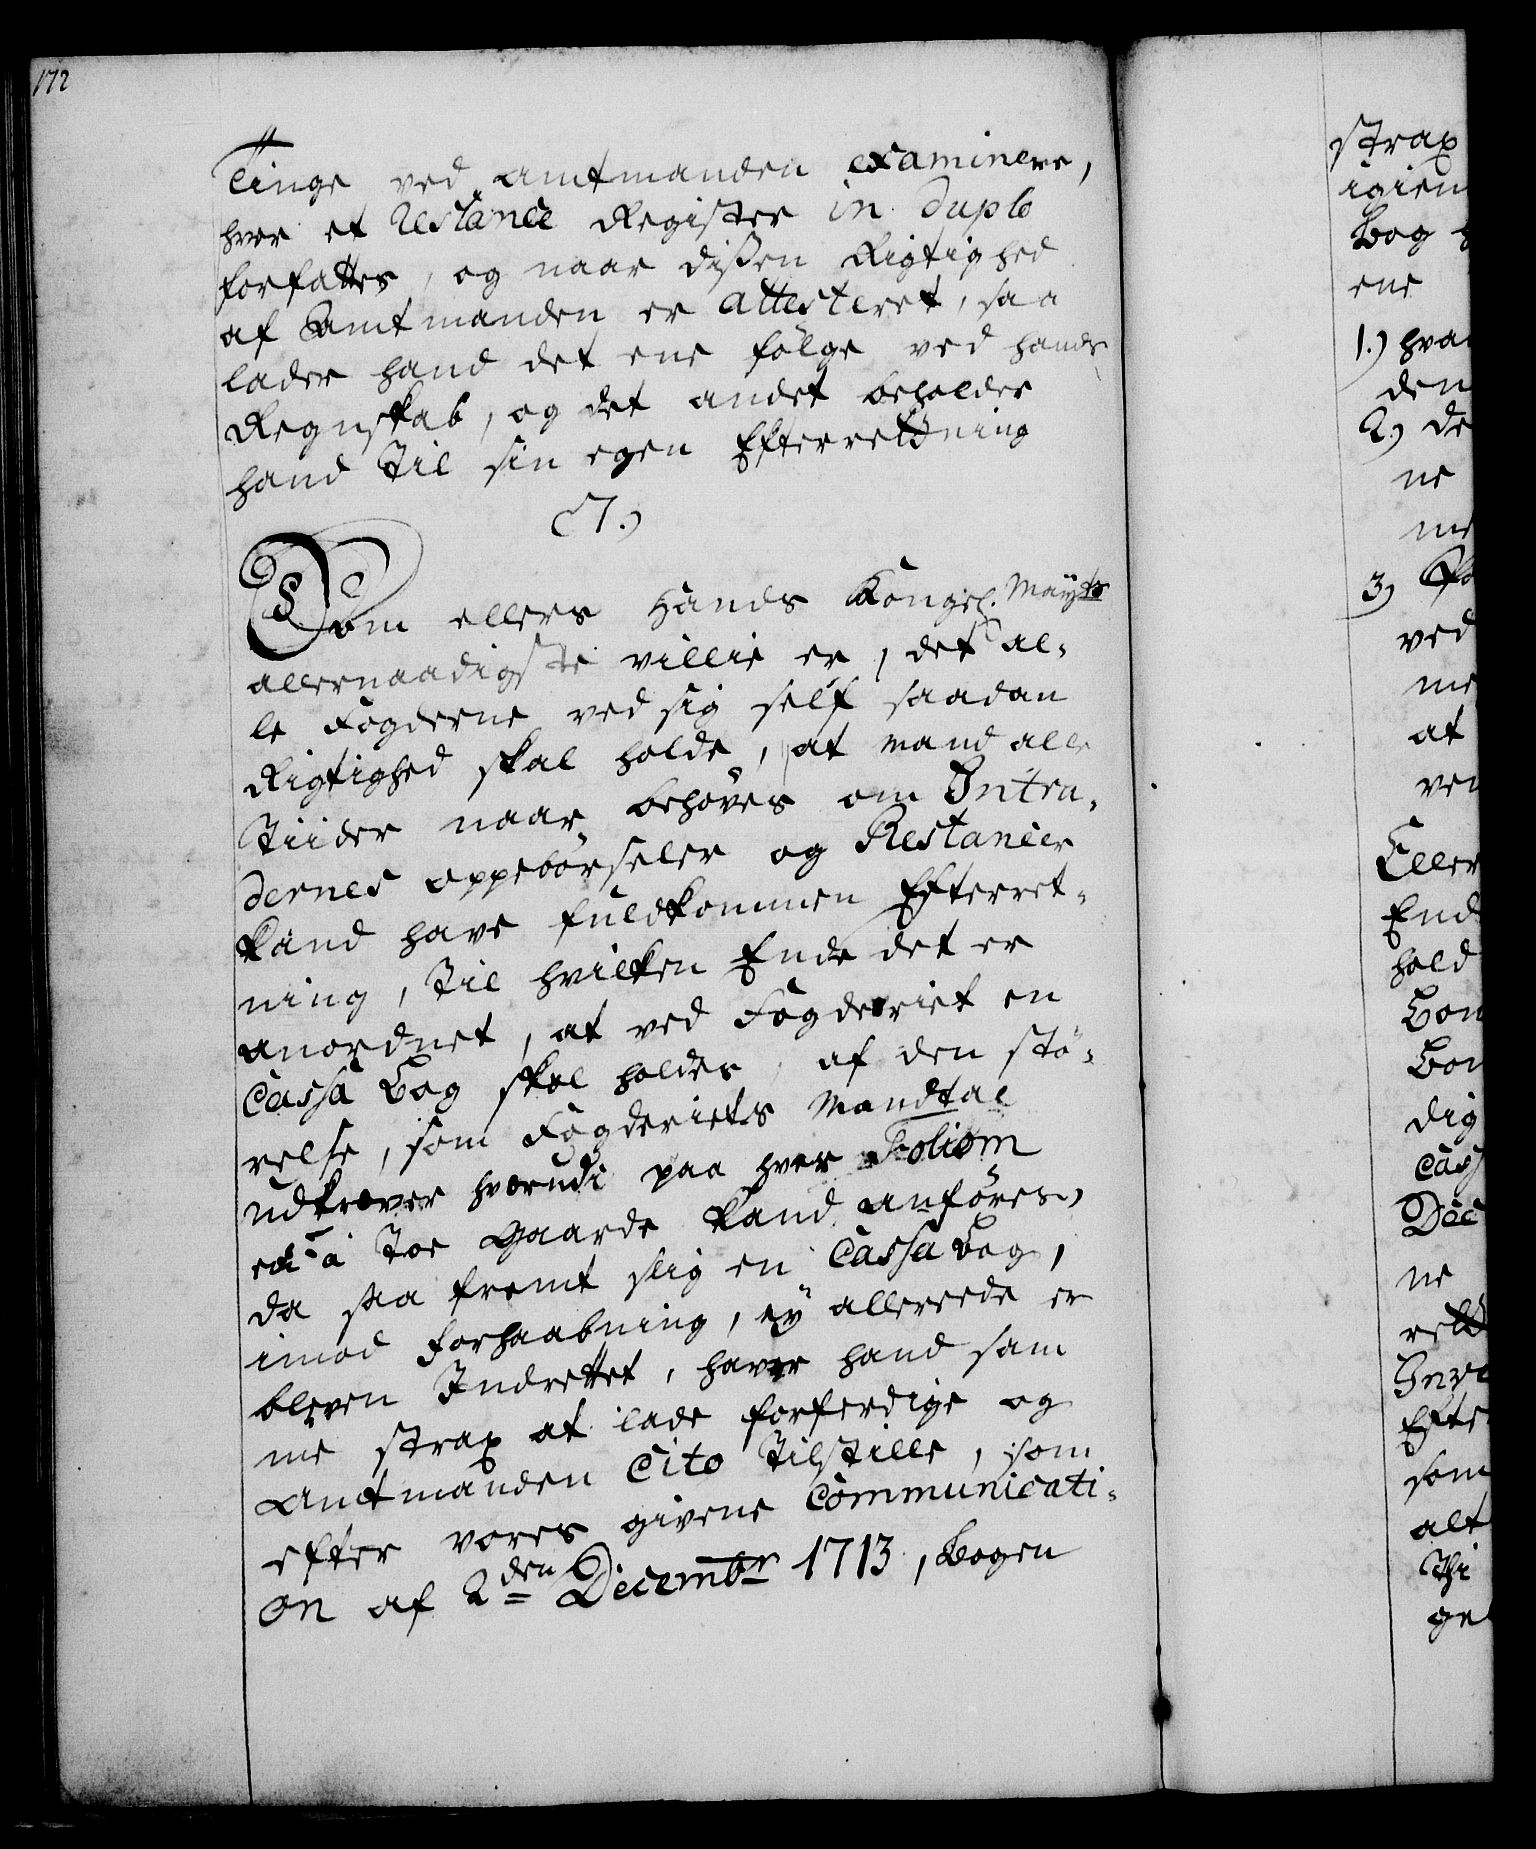 172
Tinge ved Amtmanden examinere,
hvor et Restance Register in duplo
forfattes, og naar dißen Rigtighed
af Amtmanden er attesteret, saa
lader hand det ene følge ved hands
Regnskab, og det andet beholder
hand til sin egen Efterretning
7.)
Som ellers Hands Kongel. Mayts
allernaadigste villie er, det al-
le Fogderne ved sig self saadan
Rigtighed skal holde, at mand alle
Tiider naar behøves om Intra-
dernes oppebørseler og Restancer
kand have fuldkommen Efterret-
ning, til hvilken Ende det er
anordnet, at ved Fogderiet en
Cassa Bog skal holdes, af den stø-
relse, som Fogderiets Mandtal
udkræver hvorudi paa hver Foliom
en à toe Gaarde kand anføres,
da saa fremt slig en Cassa Bog,
imod forhaabning, ey allereede er
bleven Indrettet, haver hand sam
me strax at lade forferdige og
Amtmanden Cito tilstille, som
efter vores givene Communicati-
on af 2den Decembr 1713, Bogen
strax
igien
Bog
ene
1.) hva
den
2.) de
ne
me
3.)
ved
me
at
ven
Eller
End
hold
Bon
Bon
dig
Cass
Dec
ne
rett
Inve
Efte
som
alt
Thi
ge